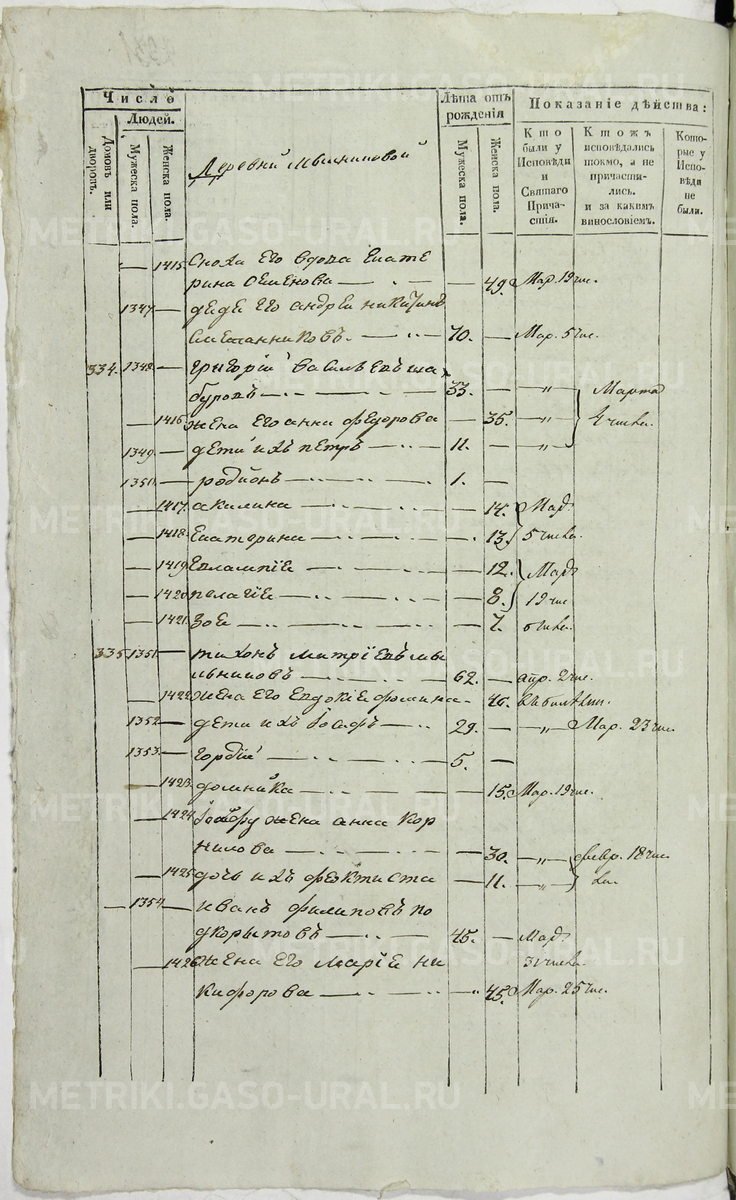 Число
Людей.
Домовъ или дворовъ.
Мужеска пола.
Женска пола.
Деревни Мыльниковой
Лѣта отъ рожденія
Мужеска пола.
Женска пола.
Показаніе дѣйства:
Кто были у Исповѣди и Святаго Причастія.
Ктожъ исповѣдались токмо, а не причастились. и за какимъ винословіемъ.
Которые у Исповѣди не были.
1415 Сноха его вдова Екате
рина Семенова — 49. Мар. 19 чис.
1347 — деде его андреи никитинъ
— 70. — Мар. 5 чис.
334. 1348 — григорій васильевъ ша
буровъ — 33. — „ Марта
— 1416 жена его анна федорова — 35. — „ 4 числа.
1349. — дети ихъ петръ — 11. — „
1350. — родионъ — 1. —
— 1417. акилина — 14. Мар.
— 1418. Екатерина — 13. 5 числа.
— 1419 Евлампіе — 12. Мар.
— 1420 пелагіе — 8. 19 чис
— 1421. Зое — 7. 5 числа.
335 1351. — тихонъ митріевъ мы
льниковъ — 62. — апр. 2 чис.
— 1422 жена его Евдокіе фомина
1352 — дети ихъ — 29. — „ Мар. 23 чис.
1353. — гордій — 5. —
— 1423. домника — 15. Мар. 19 чис.
— 1424. жена анна кор
нилова — 30. — „ февр. 18 чис
— 1425 дочь ихъ феоктиста — 11. — „
— 1354 — иванъ филиповъ по
дкорытовъ — 45. — Мар.
— 1426 жена его маріе ни 31 числа.
кифорова — 45. Мар. 25 чис.
METRIKI.GASO-URAL.RU